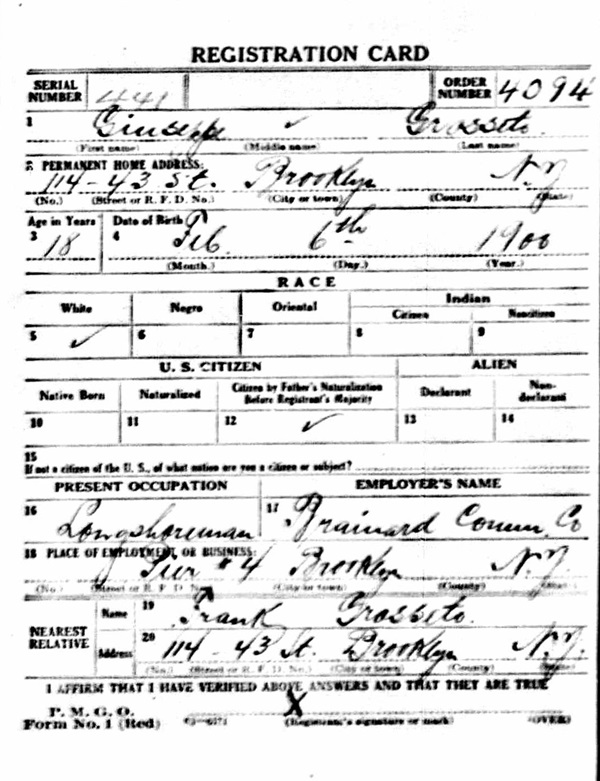 REGISTRATION CARD
SERIAL NUMBER 441 ORDER NUMBER 4094
1 Giuseppe ✓ Grosseto
(First name) (Middle name) (Last name)
2 PERMANENT HOME ADDRESS:
114-43 St. Brooklyn N.Y
(No.) (Street or R. F. D. No.) (City or town) (County) (State)
Age in Years Date of Birth
3 18 4 Feb. 6th 1900
(Month.) (Day.) (Year.)
RACE
White Negro Oriental Indian
Citizen Noncitizen
5 ✓ 6 7 8 9
U. S. CITIZEN ALIEN
Native Born Naturalized Citizen by Father's Naturalization Before Registrant's Majority Declarant Non-declarant
10 11 12 ✓ 13 14
15
If not a citizen of the U. S., of what nation are you a citizen or subject?
PRESENT OCCUPATION EMPLOYER'S NAME
16 Longshoreman 17 Brainard Comm. Co
18 PLACE OF EMPLOYMENT OR BUSINESS:
Pier #4 Brooklyn N.Y
(No.) (Street or R. F. D. No.) (City or town) (County) (State)
NEAREST RELATIVE
Name 19 Frank Grosseto.
Address 20 114-43 St. Brooklyn N.Y.
(No.) (Street or R. F. D. No.) (City or town) (County) (State)
I AFFIRM THAT I HAVE VERIFIED ABOVE ANSWERS AND THAT THEY ARE TRUE
P. M. G. O.
Form No. 1 (Red) X (Registrant's signature or mark) (OVER)